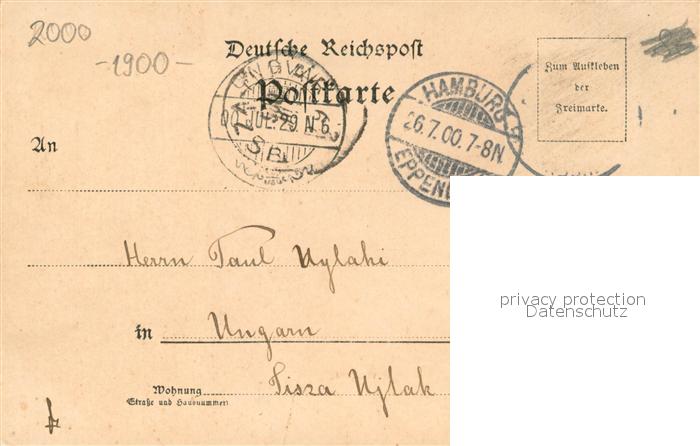 2000
-1900-
Deutsche Reichspost
Postkarte
Zum Aufkleben
der
Freimarke.
HAMBURG
26.7.00.7-8N.
00 JUL. 29 N. 6
An
Herrn Paul Uylaki
in Ungarn
Wohnung
Straße und Hausnummer
Tisza Ujlak
privacy protection
Datenschutz